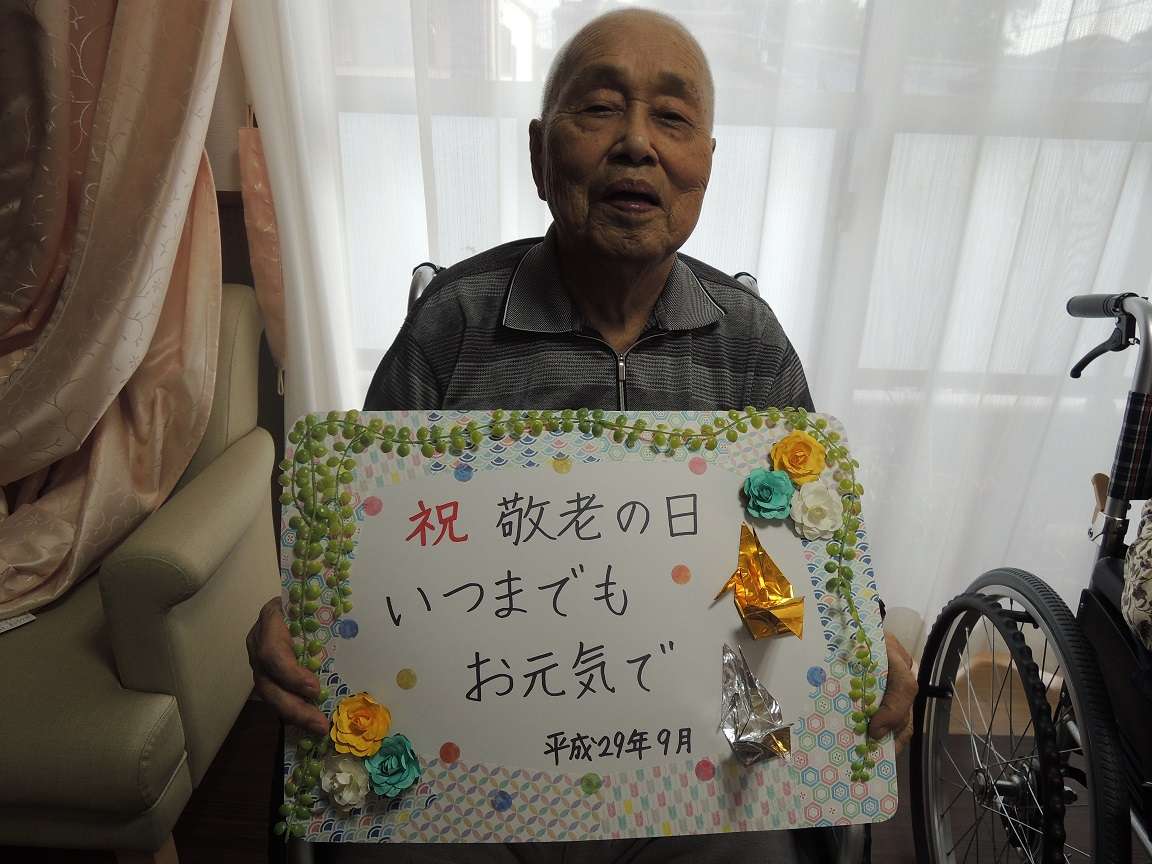 祝 敬老の日
いつまでも
お元気で
平成29年9月